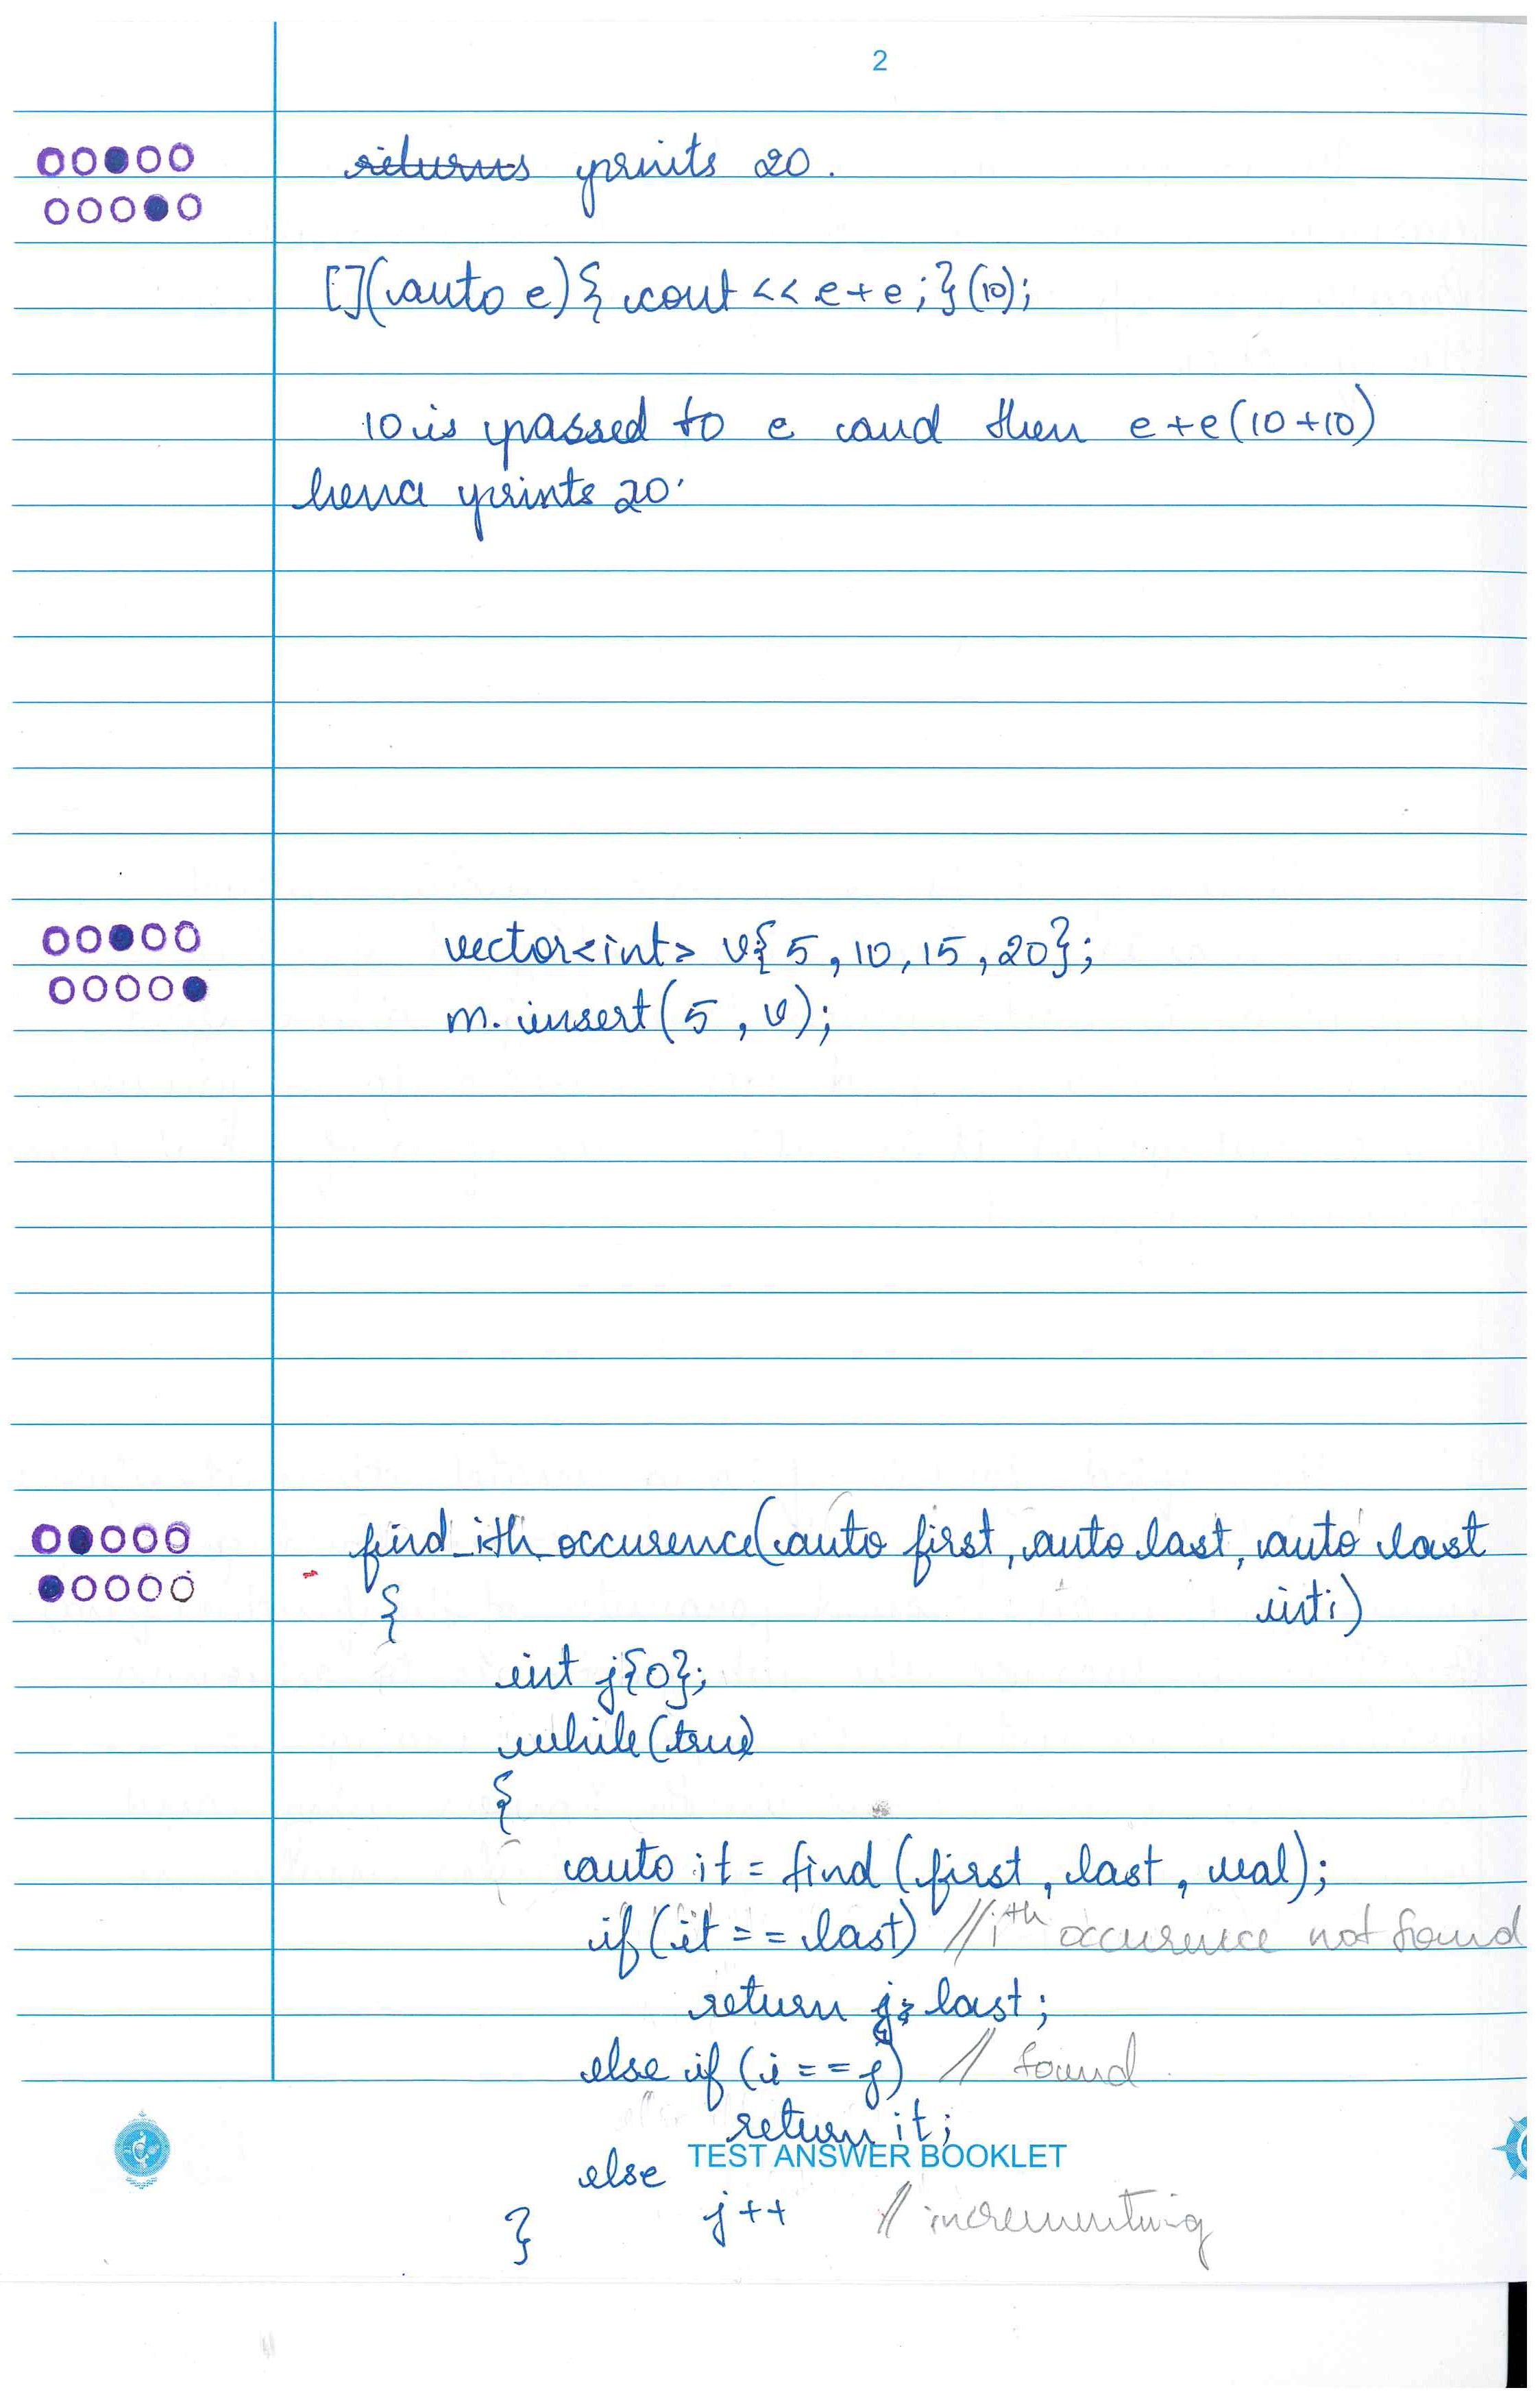 2
returns prints 20.
[](auto e){ cout << e+e;}(10);
10 is passed to e and then e+e(10+10)
hence prints 20.
vector<int> v{5, 10, 15, 20};
m.insert(5, v);
find_ith_occurence(auto first, auto last, auto last
int i)
{
int j{0};
while(true)
{
auto it = find (first, last, val);
if (it == last) //ith occurence not found
return j; last;
else if (i == j) // found
return it;
TEST ANSWER BOOKLET
else
j++ // incrementing
}